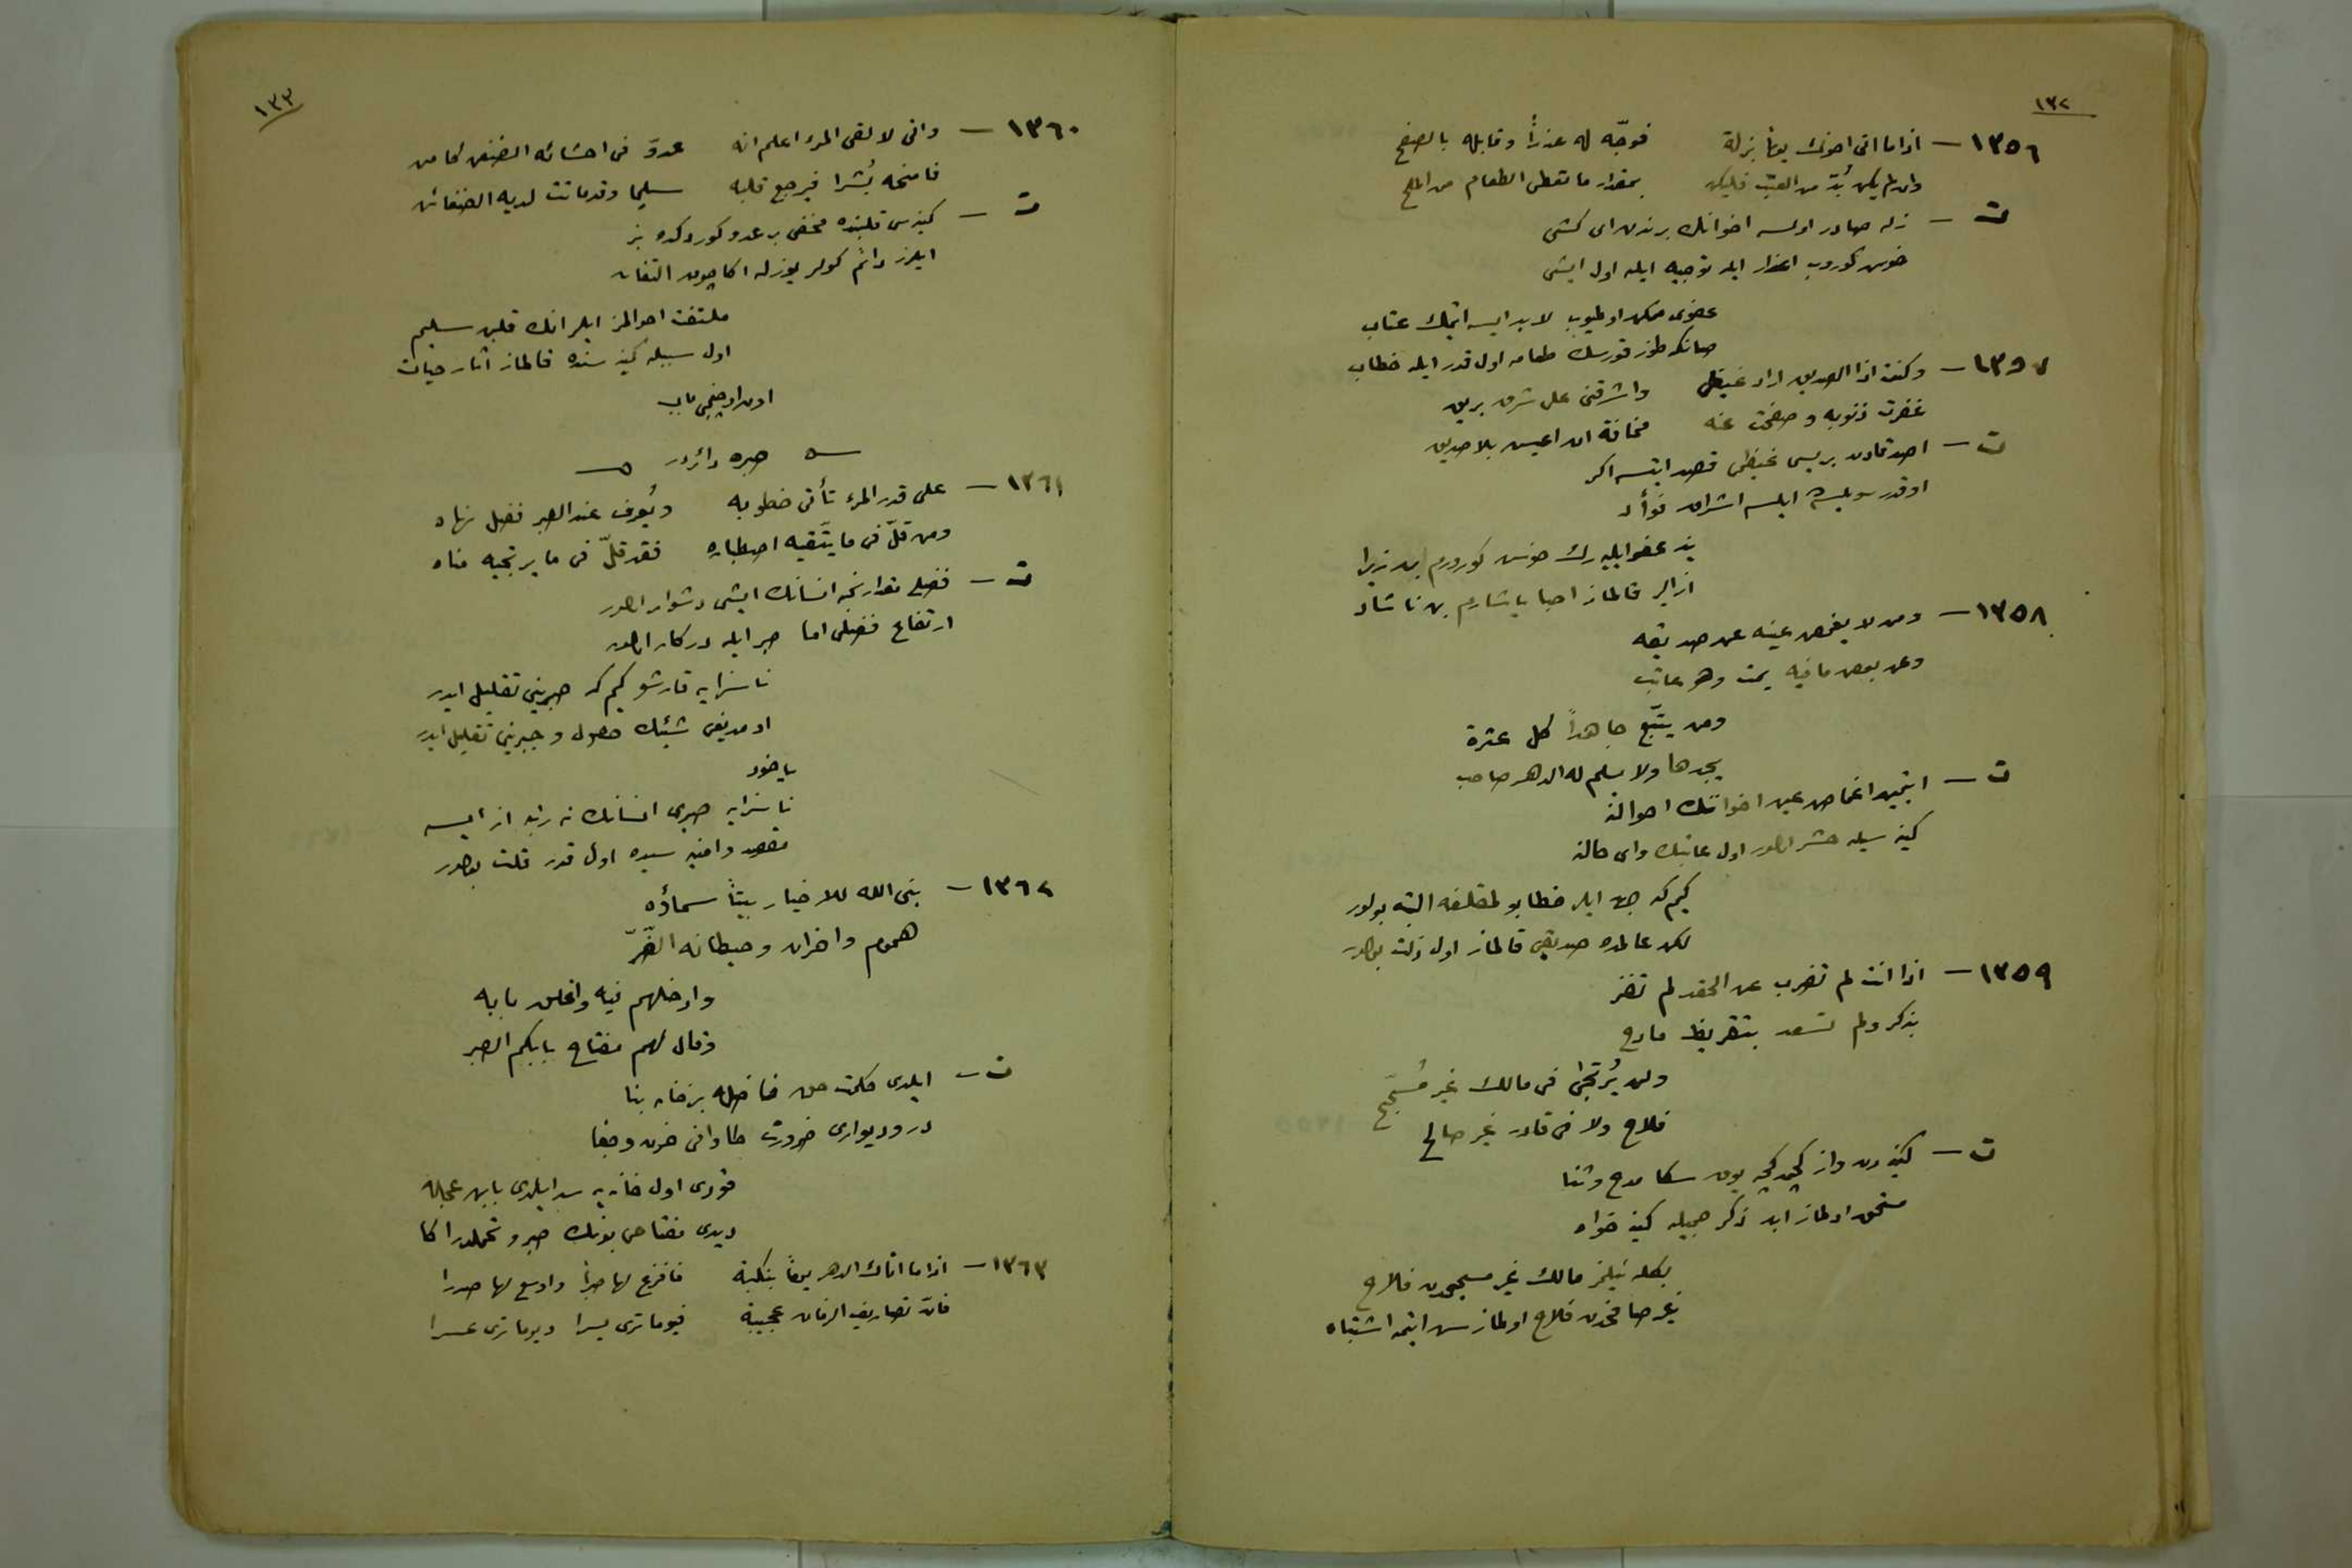 ١٣٢
١٣٥٦ — اذا ما اتى اخوك يوماً بزلة فوجّه له عذراً وقابله بالصفح
وان لم يكن بُدّ من العتب فليكن بمقدار ما تعطى الطعام من الملح
ت — زله صادر اولسه اخوانك برندن اى كشى
خوش كوروب اعذار ايله توجيه ايله اول ايشى
عفوى ممكن اولميوب لابد ايسه ايتمك عتاب
صانكه طوز قورسك طعامه اول قدر ايله خطاب
١٣٥٧ — وكنت اذا الصديق اراد غيظى واشرقنى على شرق بريق
غفرت ذنوبه وصفحت عنه مخافة ان اعيش بلا صديق
ت — اصدقادن بريسى غيظمى قصد ايتسه اكر
اوقدر ايلسه اشراق فؤاد
ينه عفو ايليه رك خوش كورورم بن زيرا
قالماز احبا ياشارم بن ناشاد
١٣٥٨ — ومن لا يغمض عينه عن صديقه
وعن بعض ما فيه يمت وهو عاتب
ومن يتتبّع جاهداً كل عثرة
يجدها ولا يسلم له الدهر صاحب
ت — ايتمين اغماض عين اخواننك احوالنه
كينه سيله حشر اولور اول عاتبك واى حالنه
كيم كه جهد ايله خطا بولمقلغه البته بولور
لكن عالمده صديقى قالماز اول ذلت بولور
١٣٥٩ — اذا انت لم تضرب عن الحقد لم تفز
بذكر ولم تسعد بتقريظ مادح
ولن يُرتجى فى مالك غير مُسجح
فلاح ولا فى قادر غير صالح
ت — كينه دن واز كچمه يوق سكا مدح وثنا
مستحق اولماز ابد ذكر جميله كينه خواه
بكله نيلمز مالك غير مسجحدن فلاح
غير صالحدن فلاح اولماز سن ايتمه اشتباه
١٣٣
١٣٦٠ — وانى لالقى المرء اعلم انه عدوّ فى احشائه الضغن كامن
فامنحه بُشرا فيرجع قلبه سليما وقد ماتت لديه الضغائن
ت — كينه سى قلبنده مخفى بر عدو كوردكده بز
ايلرز دائم كولر يوزله اكا چوق التفات
ملتفت احوالمز ايلر انك قلبن سليم
اول سببله كينه سنده قالماز آثار حيات
اون اوچنجى باب
صبره دائردر
١٣٦١ — على قدر المرء تأتى خطوبه ويُعرف عند الصبر فضل نهاه
ومن قلّ فى ما يتّقيه اصطباره فقد قلّ فى ما يرتجيه مناه
ت — فضلى مقدارنجه انسانك ايشى دشوار اولور
ارتفاع فضلى اما صبر ايله دركار اولور
ناسزايه قارشو كيم كه صبرينى تقليل ايدر
شيئك حصول و تقليل ايدر
ياخود
ناسزايه صبرى انسانك نه رتبه از ايسه
مقصد وامنيه سيده اول قدر قلت بولور
١٣٦٢ — بنى الله للاخيار بيتاً سماؤه
هموم واحزان وحيطانه الضّرّ
وادخلهم فيه واغلق بابه
وقال لهم مفتاح بابكم الصبر
ت — ايلدى حكمت حق فاضله بر خانه بنا
در وديوارى ضرورت طاوانى حزن وجفا
قودى اول خانه يه سد ايلدى بابن عجله
ديدى مفتاحى بونك صبر وتحملدر اكا
١٣٦٣ — اذا ما اتاك الدهر يوماً بنكبة فافرغ لها صبراً واوسع لها صدرا
فانّ تصاريف الزمان عجيبة فيوما ترى يسرا ويوما ترى عسرا